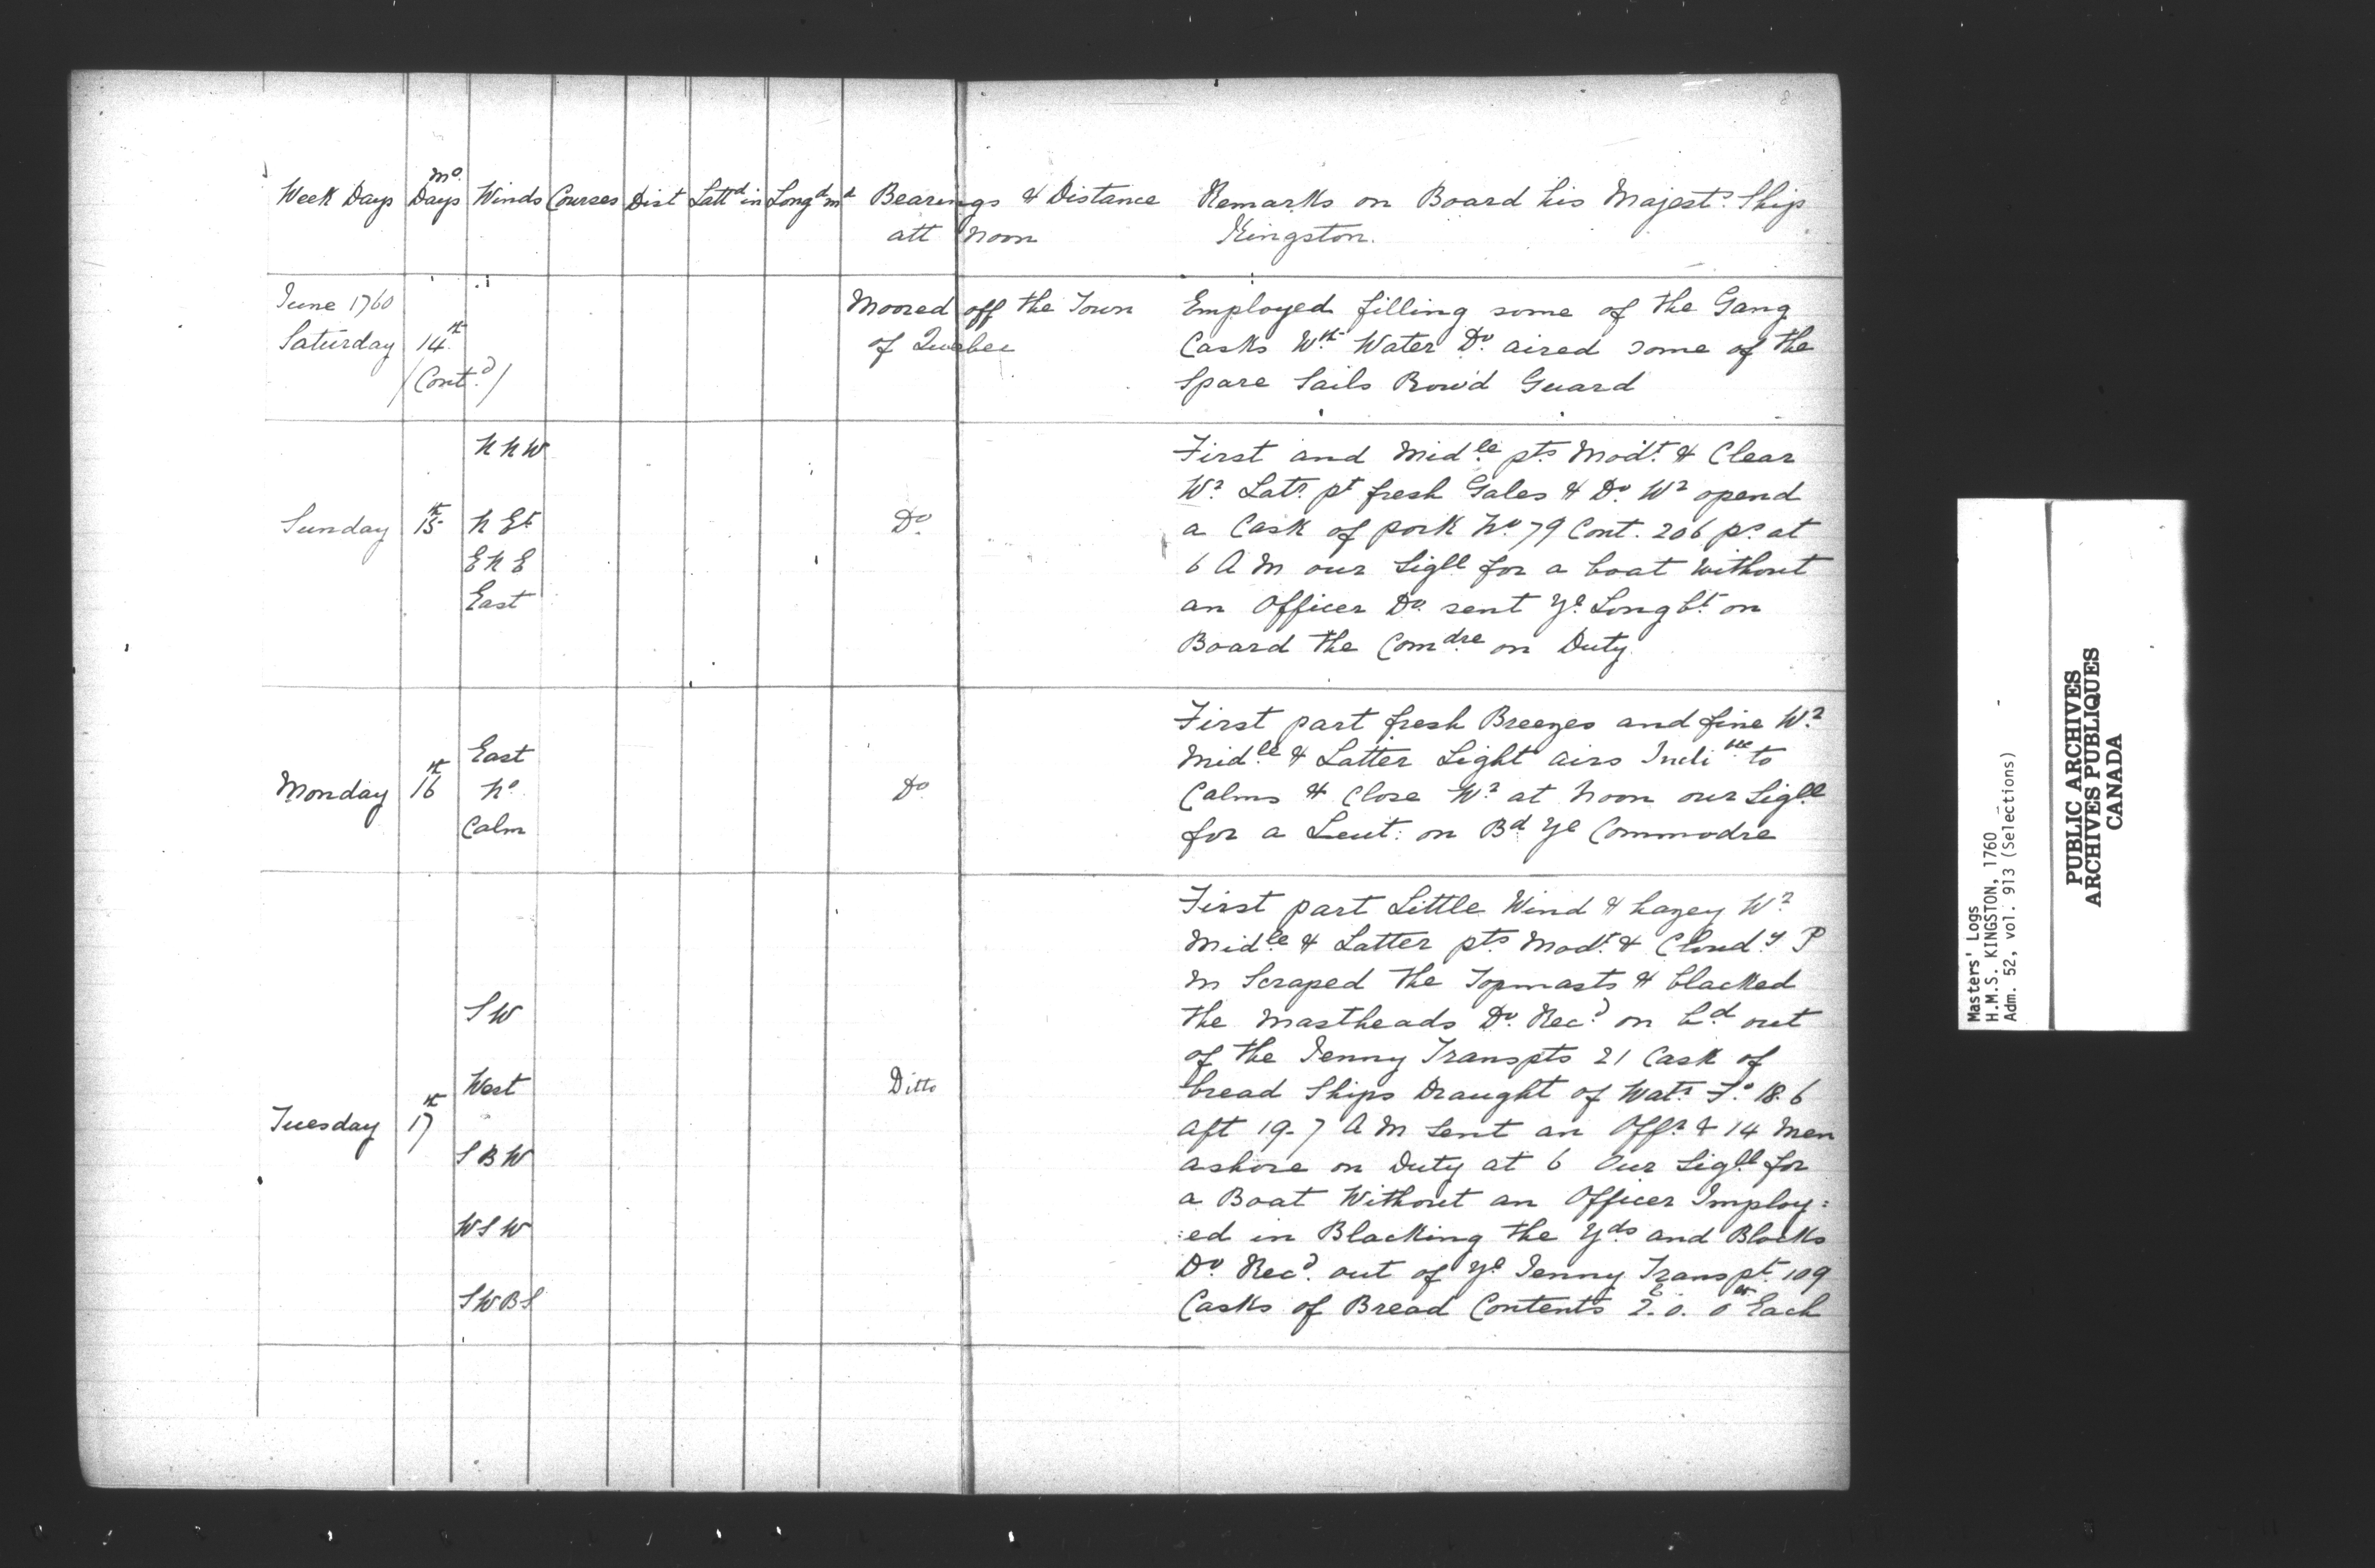 8
Week Days Mo. Days Winds Courses Dist Lattd in Longd md Bearings & Distance att Noon
Remarks on Board his Majests. Ship
Kingston.
June 1760
Saturday 14th
(Contd.)
Moored off the Town
of Quebec
Employed filling some of the Gang
Casks Wth Water Do. aired some of the
Spare Sails Row'd Guard
Sunday 15th
N N W
N Et
E N E
East
Do.
First and Midle pts Modt. & Clear
Wr. Latr. pt fresh Gales & Do. Wr opend
a Cask of pork No. 79 Cont. 206 ps. at
6 A M our Sigll for a boat without
an Officer Do. sent Ye Longbt. on
Board the Comdre on Duty
Monday 16th
East
No.
Calm
Do.
First part fresh Breezes and fine Wr.
Midle & Latter Light airs to
Calms & Close Wr. at Noon our Sigll
for a Leut: on Bd Ye Commodre
Tuesday 17th
S W
West
S B W
W S W
S W B S
Ditto
First part Little Wind & hazey Wr.
Midle & Latter pts Modt. & Cloudy P
M Scraped the Topmasts & blacked
the Mastheads Do. Recd. on bd out
of the Jenny Transpts 21 Cask of
bread Ships Draught of Watr. Fo. 18.6
aft 19-7 A M sent an Offr. & 14 Men
ashore on Duty at 6 Our Sigll for
a Boat Without an Officer Imploy:
:ed in Blacking the Yds and Blocks
Do. Recd. out of Ye Jenny Transpt. 109
Casks of Bread Contents 2. 0. 0 Each
Masters' Logs
H.M.S. KINGSTON, 1760
Adm. 52, vol. 913 (Selections)
PUBLIC ARCHIVES
ARCHIVES PUBLIQUES
CANADA